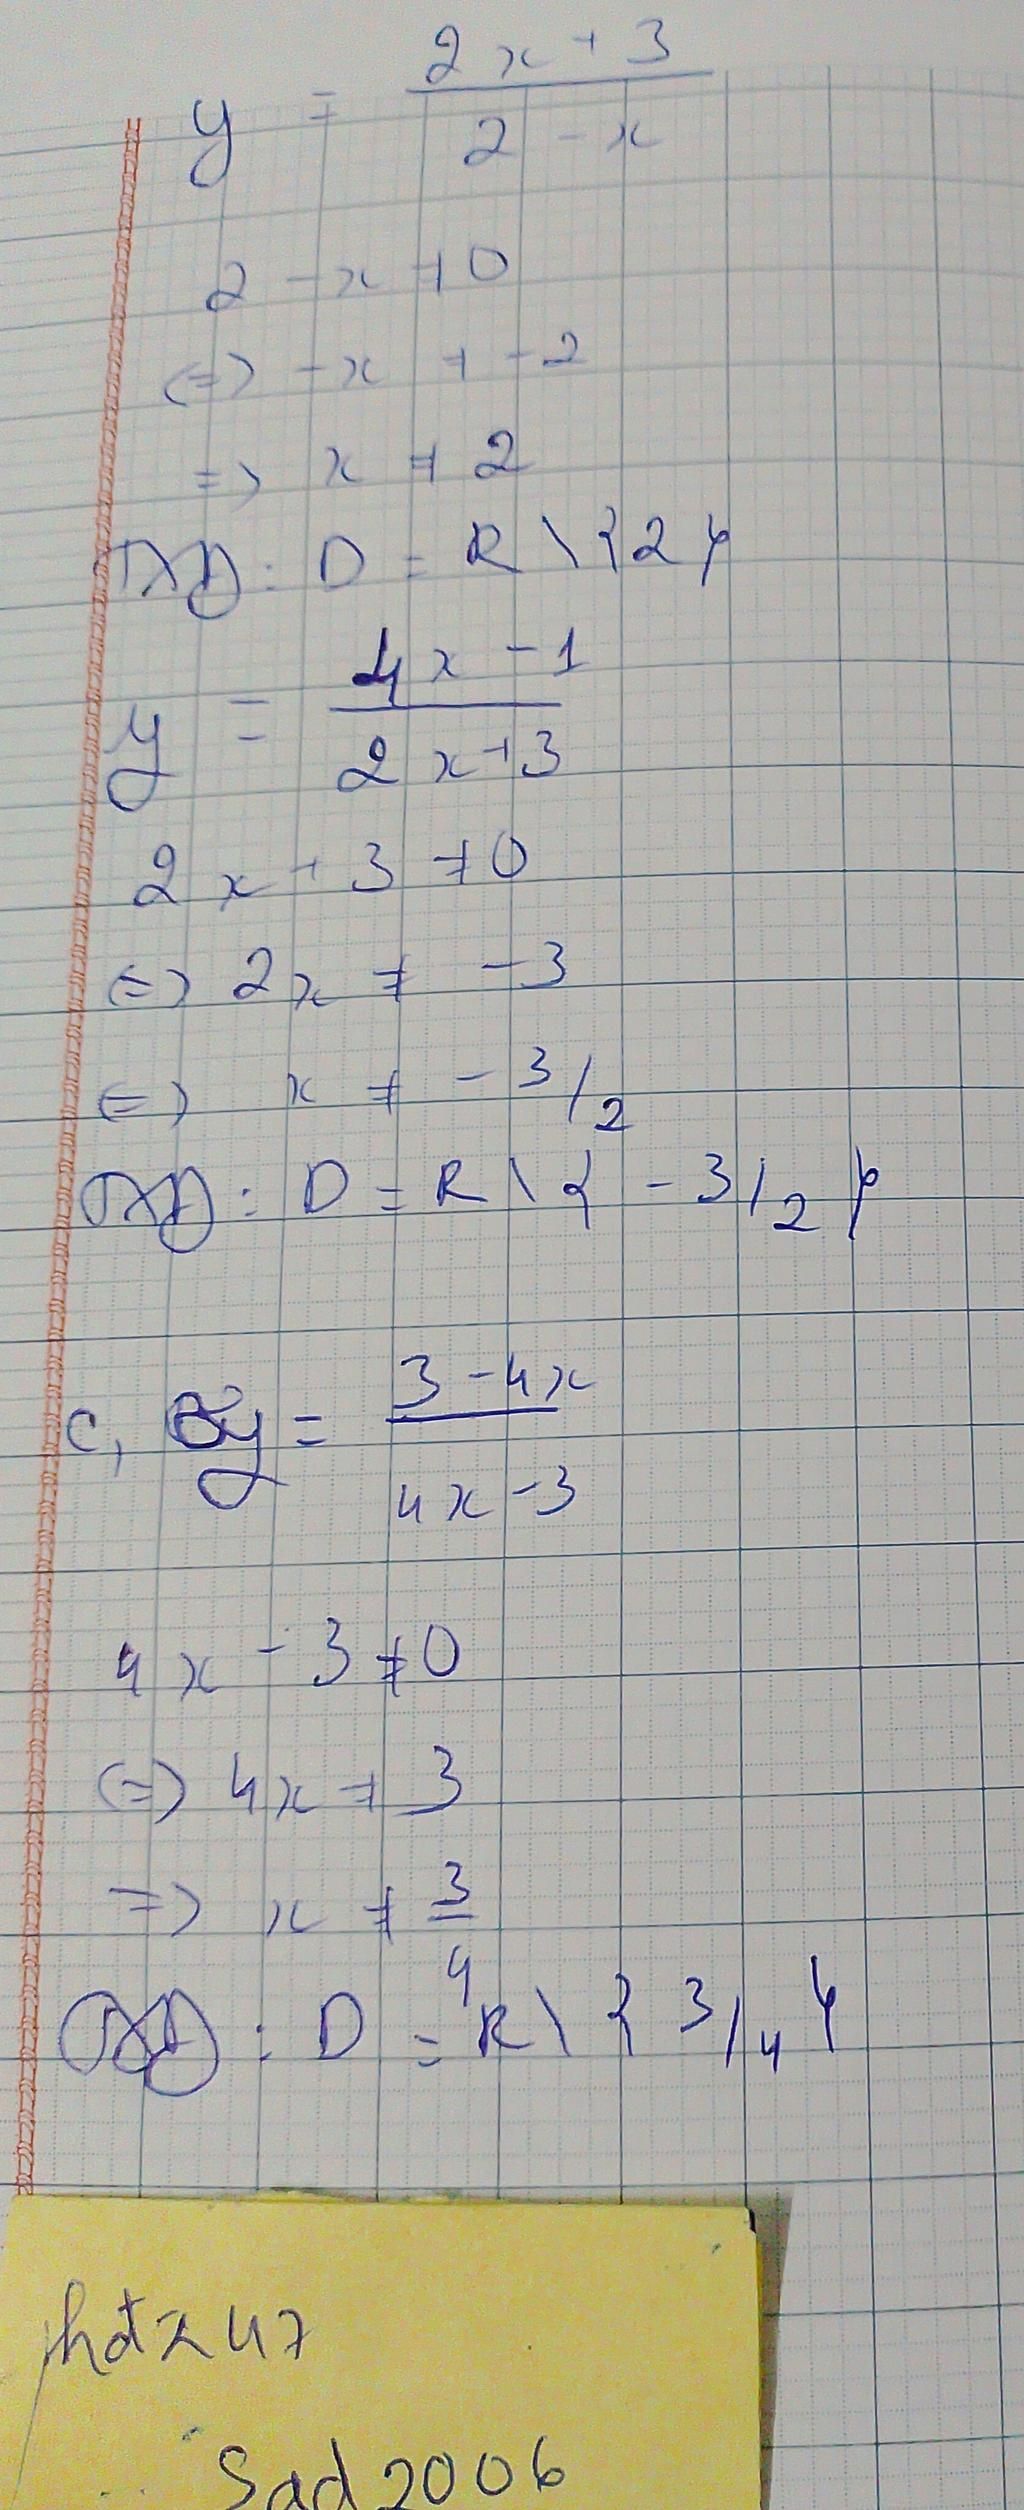 y = (2x + 3)/(2 - x)
2 - x ≠ 0
<=> -x ≠ -2
=> x ≠ 2
TXĐ: D = R \ {2}
y = (4x - 1)/(2x + 3)
2x + 3 ≠ 0
<=> 2x ≠ -3
<=> x ≠ -3/2
TXĐ: D = R \ { -3/2 }
c, y = (3 - 4x)/(4x - 3)
4x - 3 ≠ 0
<=> 4x ≠ 3
=> x ≠ 3/4
TXĐ: D = R \ { 3/4 }
Sad2006